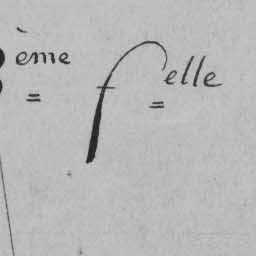 ème felle